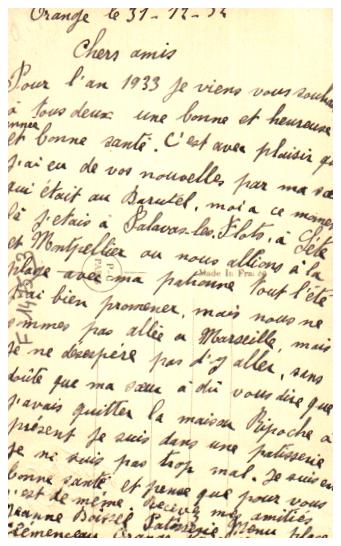 Orange le 31-12-32
Chers amis
Pour l'an 1933 je viens vous souhai
à tous deux une bonne et heureuse
annee
et bonne santé. C'est avec plaisir que
j'ai eu de vos nouvelles par ma sœ
qui était au Barutel, moi a ce momen
là j'etais à Palavas-les-Flots, à Sète
et Montpellier ou nous allions à la
plage avec ma patronne tout l'été
Made In France
j'ai bien promener, mais nous ne
sommes pas allée a Marseille, mais
je ne désespére pas d'y aller, sans
doûte que ma sœur à dû vous dire que
j'avais quitter la maison Ripoche a
présent je suis dans une patisserie
je ni suis pas trop mal. Je suis en
bonne santé et pense que pour vous
c'est de même. Recevez mes amitiés
Jeanne Patisserie Menu place
Clémenceau Orange